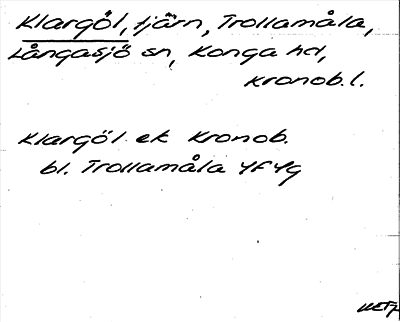 Klargöl, tjärn, Trollamåla,
Långasjö sn, Konga hd,
Kronob.l.
Klargöl ek Kronob.
bl. Trollamåla 4F4g